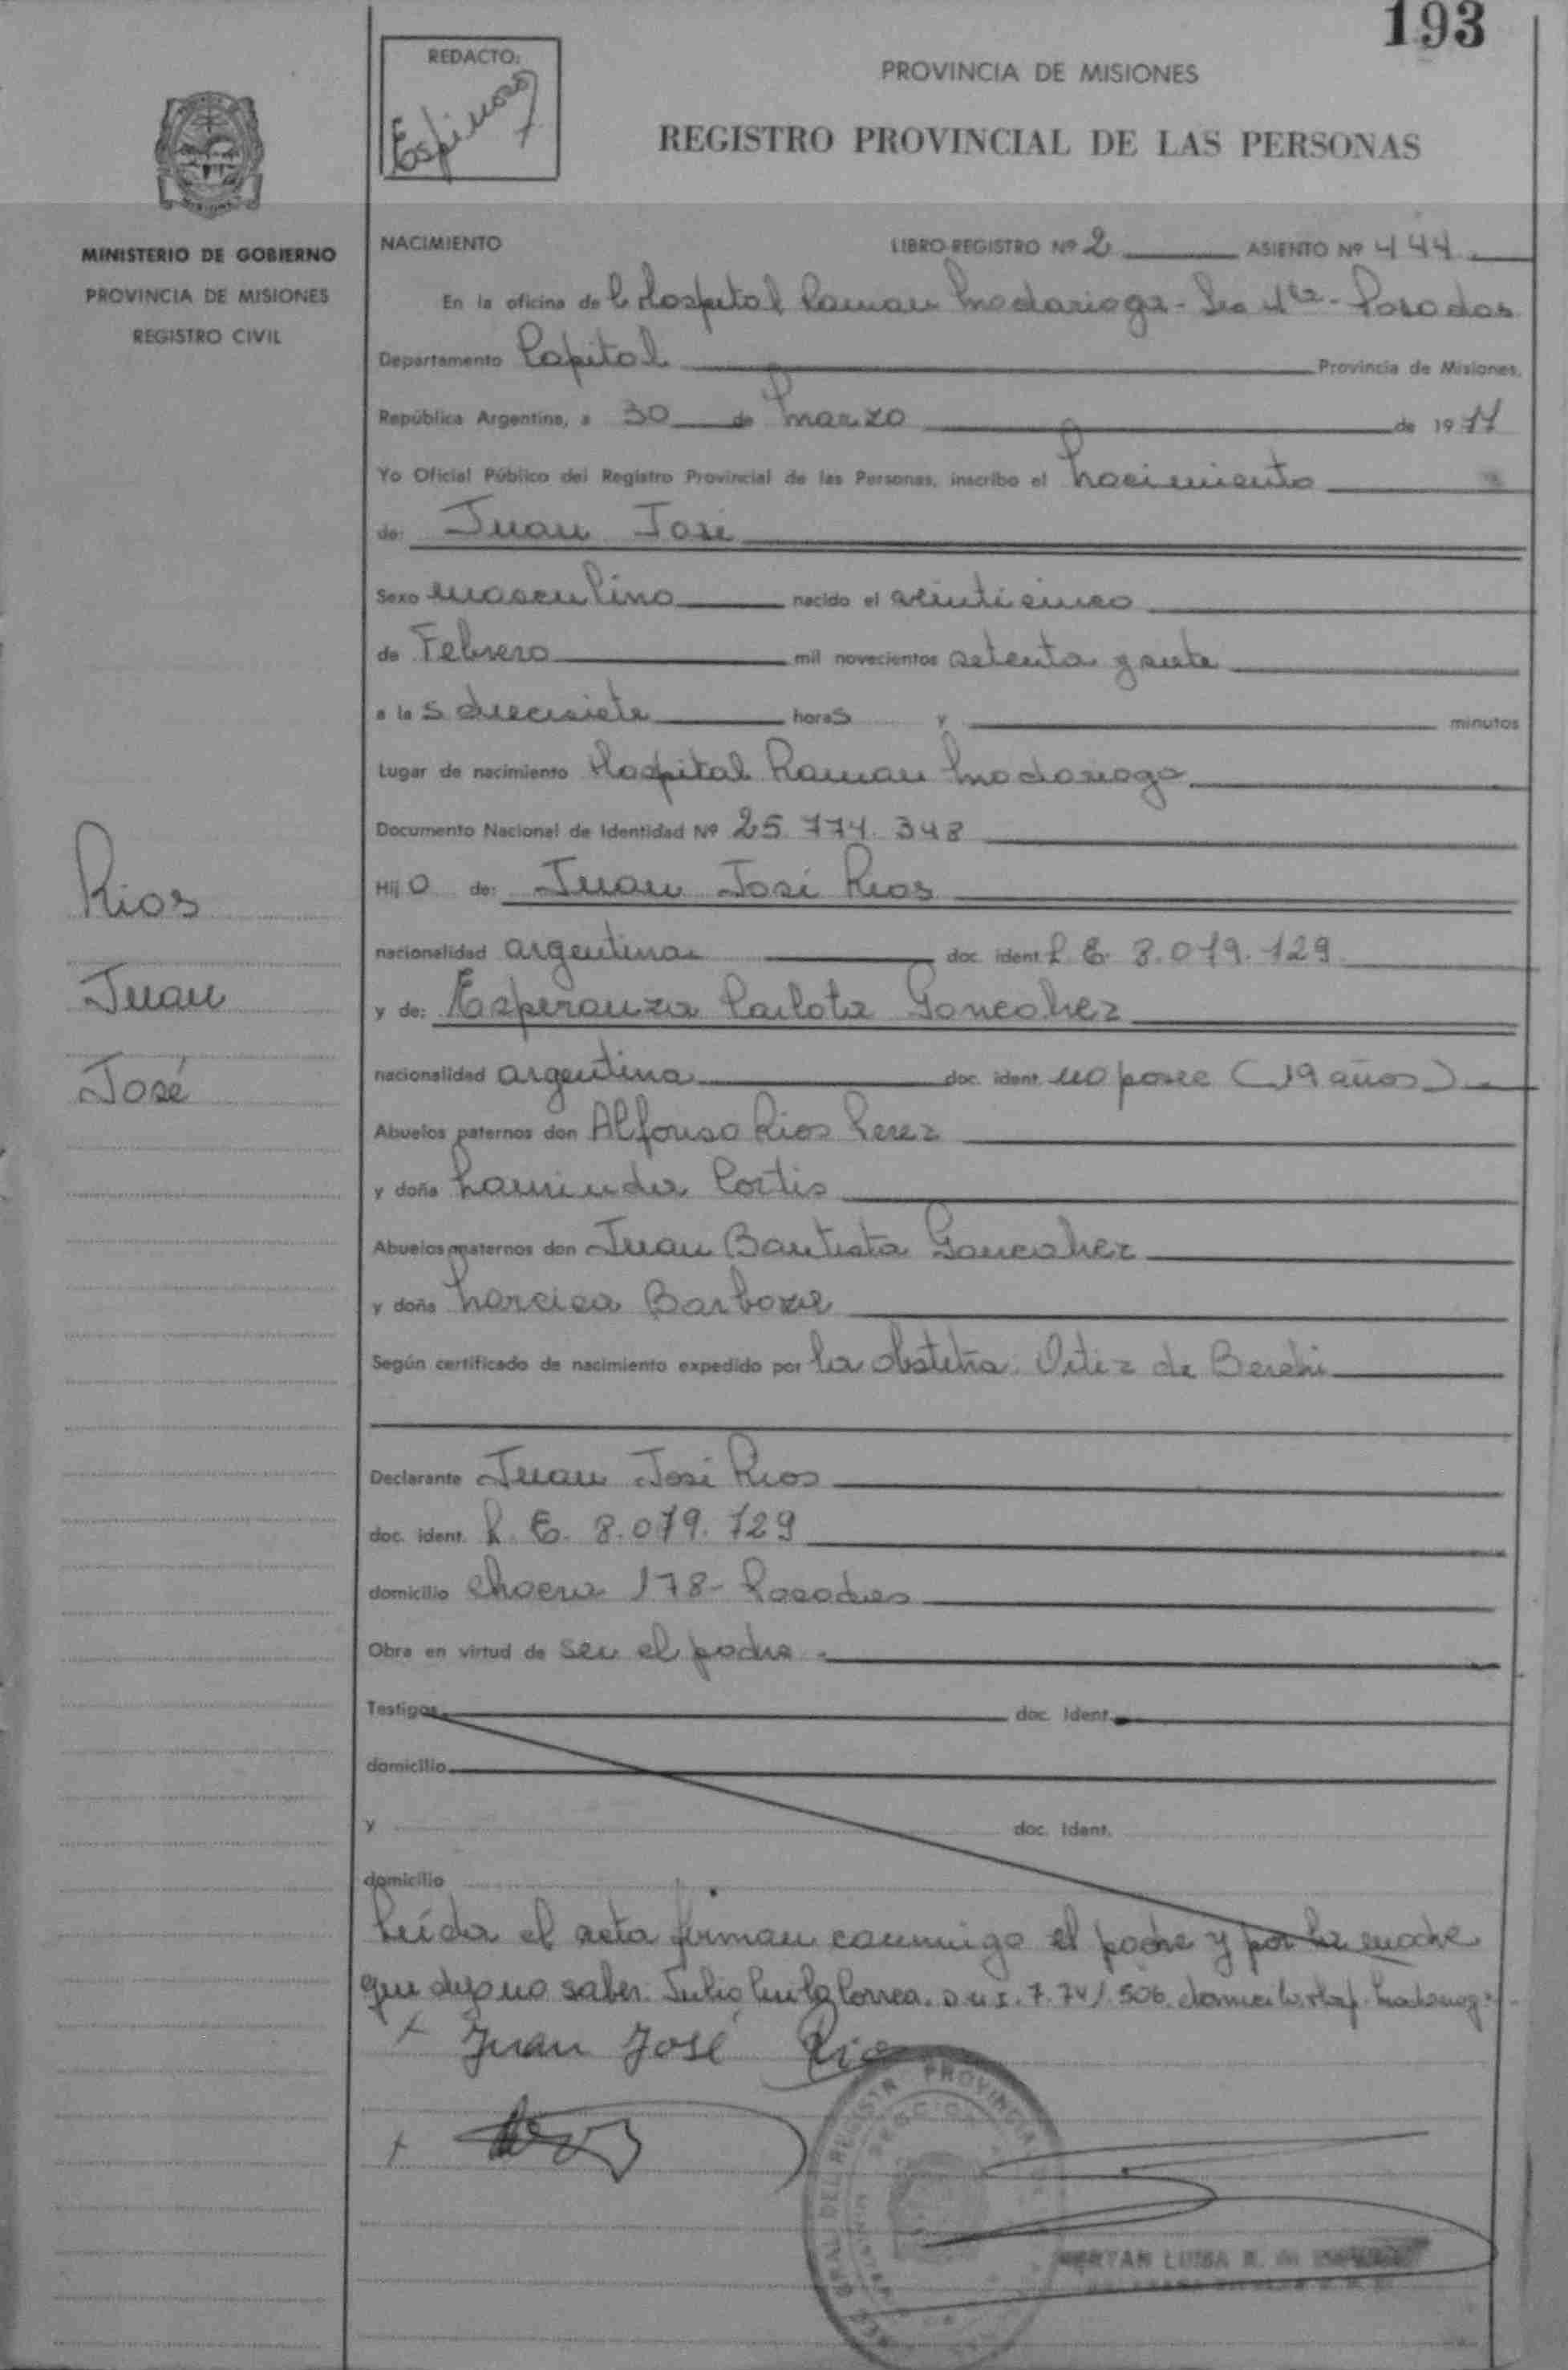 193
REDACTO:
Espinoza
PROVINCIA DE MISIONES
REGISTRO PROVINCIAL DE LAS PERSONAS
MINISTERIO DE GOBIERNO
PROVINCIA DE MISIONES
REGISTRO CIVIL
NACIMIENTO LIBRO-REGISTRO Nº 2 ASIENTO Nº 444
En la oficina del Hospital Ramon Madariaga - Posadas
Departamento Capital Provincia de Misiones,
República Argentina, a 30 de Marzo de 1977
Yo Oficial Público del Registro Provincial de las Personas, inscribo el Nacimiento
de: Juan José
Sexo masculino nacido el veinticinco
de Febrero mil novecientos setenta y siete
a las diecisiete horas y minutos
Lugar de nacimiento Hospital Ramon Madariaga
Documento Nacional de Identidad Nº 25.774.348
Hijo de: Juan José Rios
nacionalidad argentina doc. ident. L.E. 8.079.129
y de: Esperanza Carlota Goncalvez
nacionalidad argentina doc. ident. no posee (19 años)
Abuelos paternos don Alfonso Rios Perez
y doña Cortis
Abuelos maternos don Juan Bautista Goncalvez
y doña Narcisa Barboza
Según certificado de nacimiento expedido por la obstetra Ortiz de
Declarante Juan José Rios
doc. ident. L.E. 8.079.129
domicilio Chacra 178 - Posadas
Obra en virtud de ser el padre.
Testigos doc. Ident.
domicilio
y doc. Ident.
domicilio
Leída el acta firman conmigo el padre y por la madre
que dijo no saber. Julio Correa. D.N.I. 7.741.506. domicilio Hosp. Madariaga
Juan José Rios
Rios
Juan
José